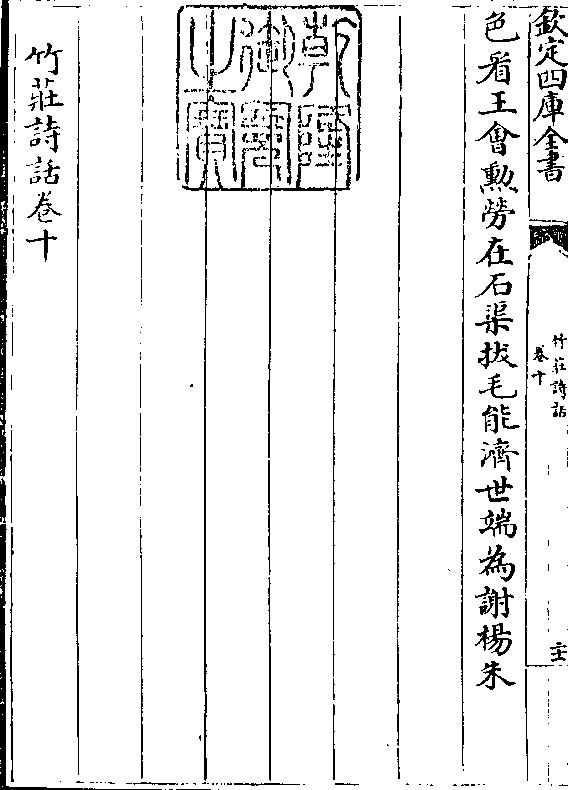 欽定四庫全書
竹莊詩話
卷十
色看王會勲勞在石渠拔毛能濟世端為謝楊朱
乾隆御覽之寶
竹莊詩話卷十